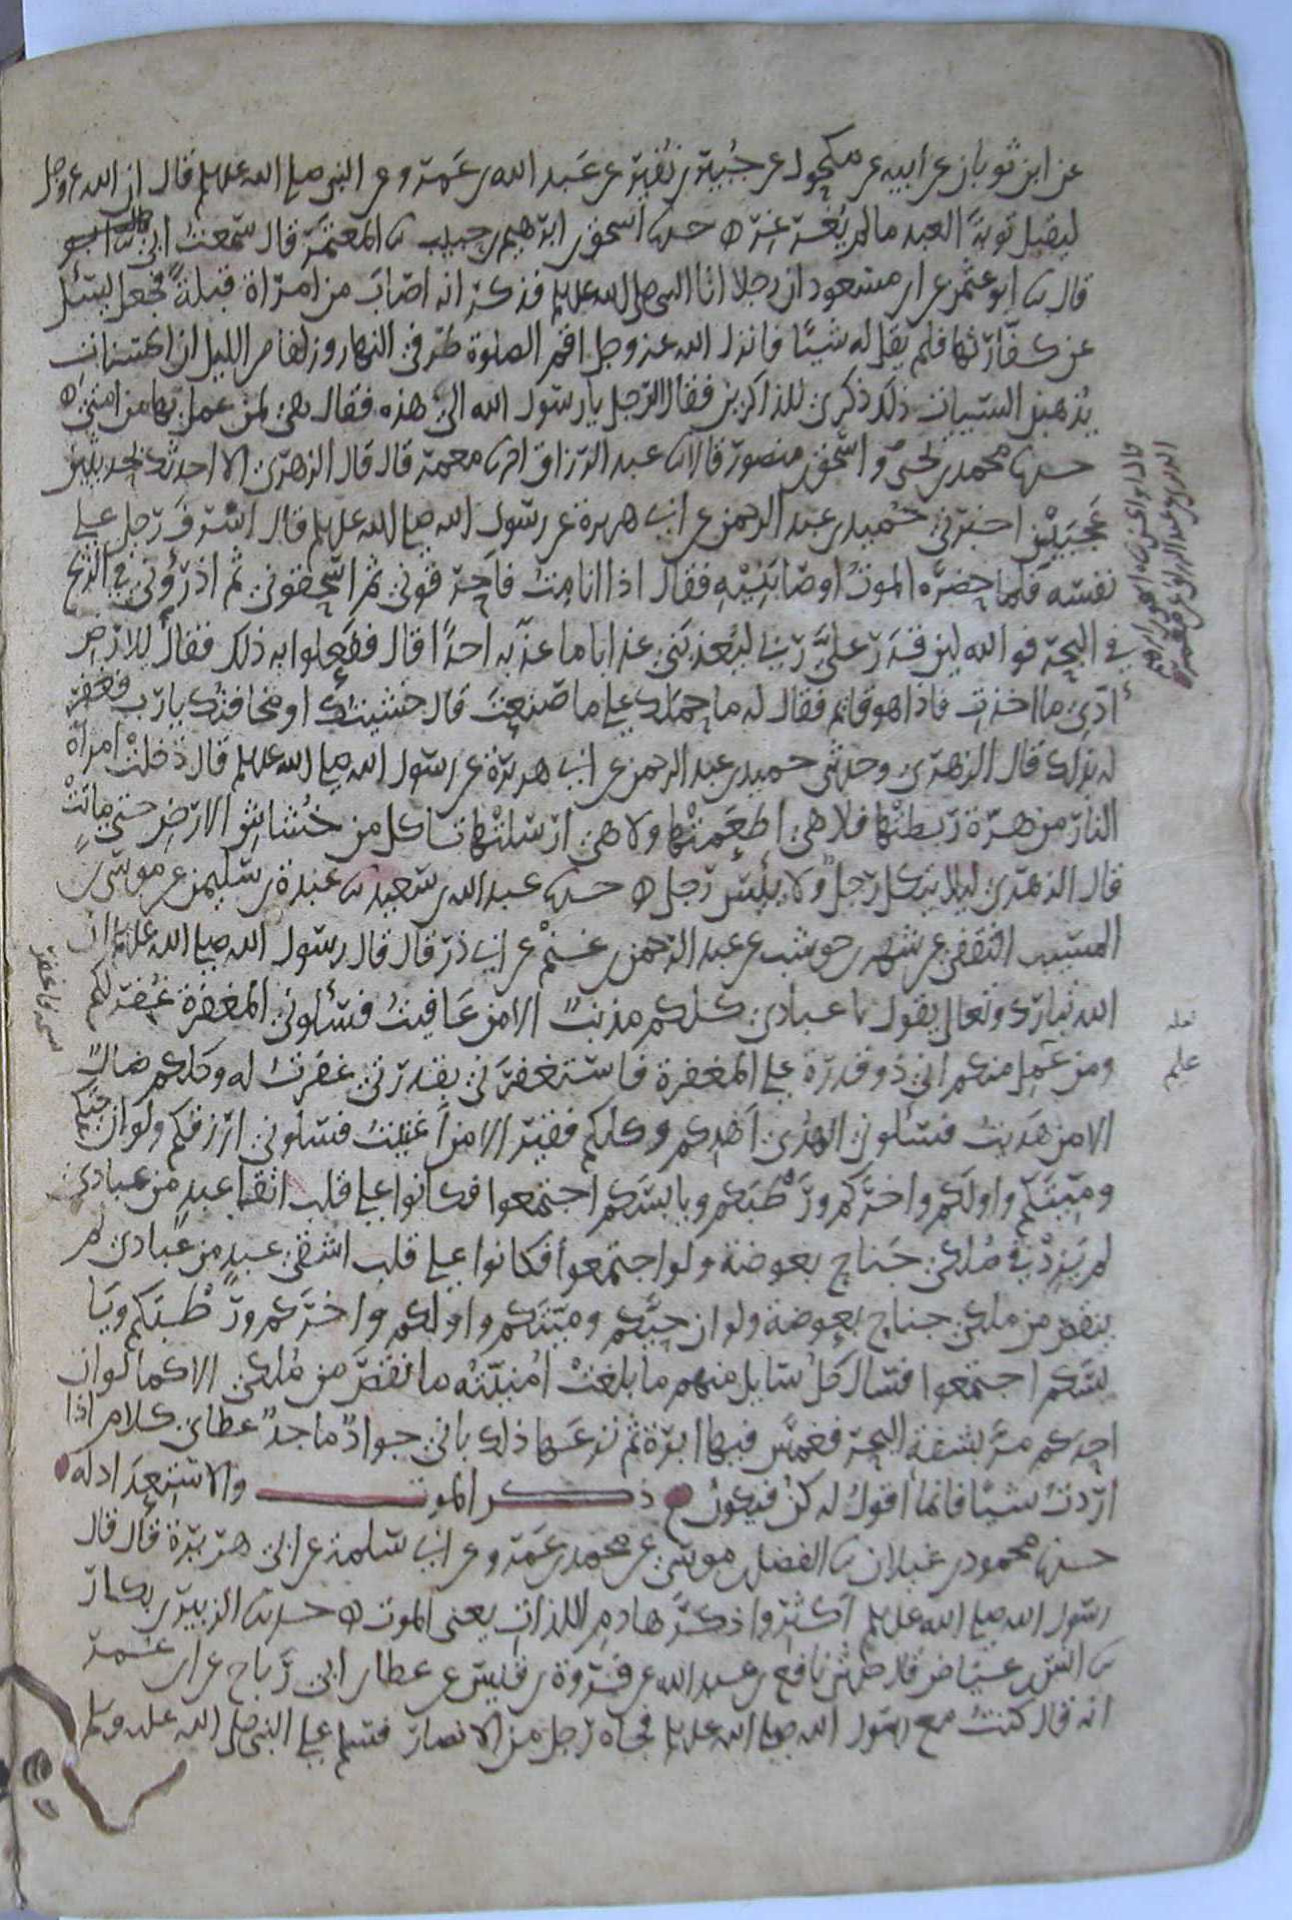 عن ابن ثوبان عن ابيه عن مكحول عن جبير بن نفير عن عبد الله بن عمرو عن النبي صلى الله عليه وسلم قال ان الله عز وجل
ليقبل توبة العبد ما لم يغرغر ه حدثنا اسحق بن ابرهيم بن حبيب ثنا المعتمر قال سمعت ابي
قال ثنا ابو عثمن عن ابن مسعود ان رجلا اتا النبي صلى الله عليه وسلم فذكر انه اصاب من امراة قبلة فجعل يسئل
عن كفارتها فلم يقل له شيئا فانزل الله عز وجل اقم الصلوة طرفي النهار وزلفا من الليل ان الحسنات
يذهبن السيئات ذلك ذكرى للذاكرين فقال الرجل يا رسول الله الي هذه فقال هي لمن عمل بها من امتي ه
حدثنا محمد بن يحيى و اسحق بن منصور قالا ثنا عبد الرزاق انا معمر قال قال الزهري الا احدثك بحديثين
عجيبين اخبرني حميد بن عبد الرحمن عن ابي هريرة عن رسول الله صلى الله عليه وسلم قال اسرف رجل على
نفسه فلما حضره الموت اوصا بنيه فقال اذا انا مت فاحرقوني ثم اسحقوني ثم اذرؤني في الريح
في البحر فو الله لين قدر علي ربي ليعذبني عذابا ما عذبه احدا قال ففعلوا به ذلك فقال للارض
ادي ما اخذت فاذا هو قايم فقال له ما حملك على ما صنعت قال خشيتك او مخافتك يا رب فغفر
له بذلك قال الزهري وحدثني حميد بن عبد الرحمن عن ابي هريرة عن رسول الله صلى الله عليه وسلم قال دخلت امراة
النار من هرة ربطتها فلا هي اطعمتها ولا هي ارسلتها تاكل من خشاش الارض حتى ماتت
قال الزهري ليلا يتكل رجل ولا يئيس رجل ه حدثنا عبد الله بن سعيد ثنا عبدة بن سليمن عن موسى بن
المسيب الثقفي عن شهر بن حوشب عن عبد الرحمن بن غنم عن ابي ذر قال قال رسول الله صلى الله عليه وسلم ان
الله تبارك وتعالى يقول يا عبادي كلكم مذنب الا من عافيت فسئلوني المغفرة غفر لكم
ومن عمل منكم اني ذو قدرة على المغفرة فاستغفرني بقدرتي غفرت له وكلكم ضال
الا من هديت فسئلوني الهدى اهدكم وكلكم فقير الا من اغنيت فسئلوني ارزقكم ولو ان حيكم
وميتكم واولكم واخركم ورطبكم ويابسكم اجتمعوا فكانوا على قلب اتقا عبد من عبادي
لم يزد في ملكي جناح بعوضة ولو اجتمعوا فكانوا على قلب اشقى عبد من عبادي لم
ينقص من ملكي جناح بعوضة ولو ان حيكم وميتكم واولكم واخركم ورطبكم ويا
بسكم اجتمعوا فسال كل سايل منهم ما بلغت امنيته ما نقص من ملكي الا كما لو ان
احدكم مر بشفة البحر فغمس فيها ابرة ثم نزعها ذلك باني جواد ماجد عطاي كلام اذا
اردت شيئا فانما اقول له كن فيكون ذكر الموت والاستعداد له
حدثنا محمود بن غيلان ثنا الفضل بن موسى عن محمد بن عمرو عن ابي سلمة عن ابي هريرة قال قال
رسول الله صلى الله عليه وسلم اكثروا ذكر هادم اللذات يعني الموت ه حدثنا الزبير بن بكار
ثنا انس بن عياض قال حدثني نافع بن عبد الله عن فروة بن قيس عن عطا بن ابي رباح عن ابن عمر
انه قال كنت مع رسول الله صلى الله عليه وسلم فجاه رجل من الانصار فسلم على النبي صلى الله عليه وسلم